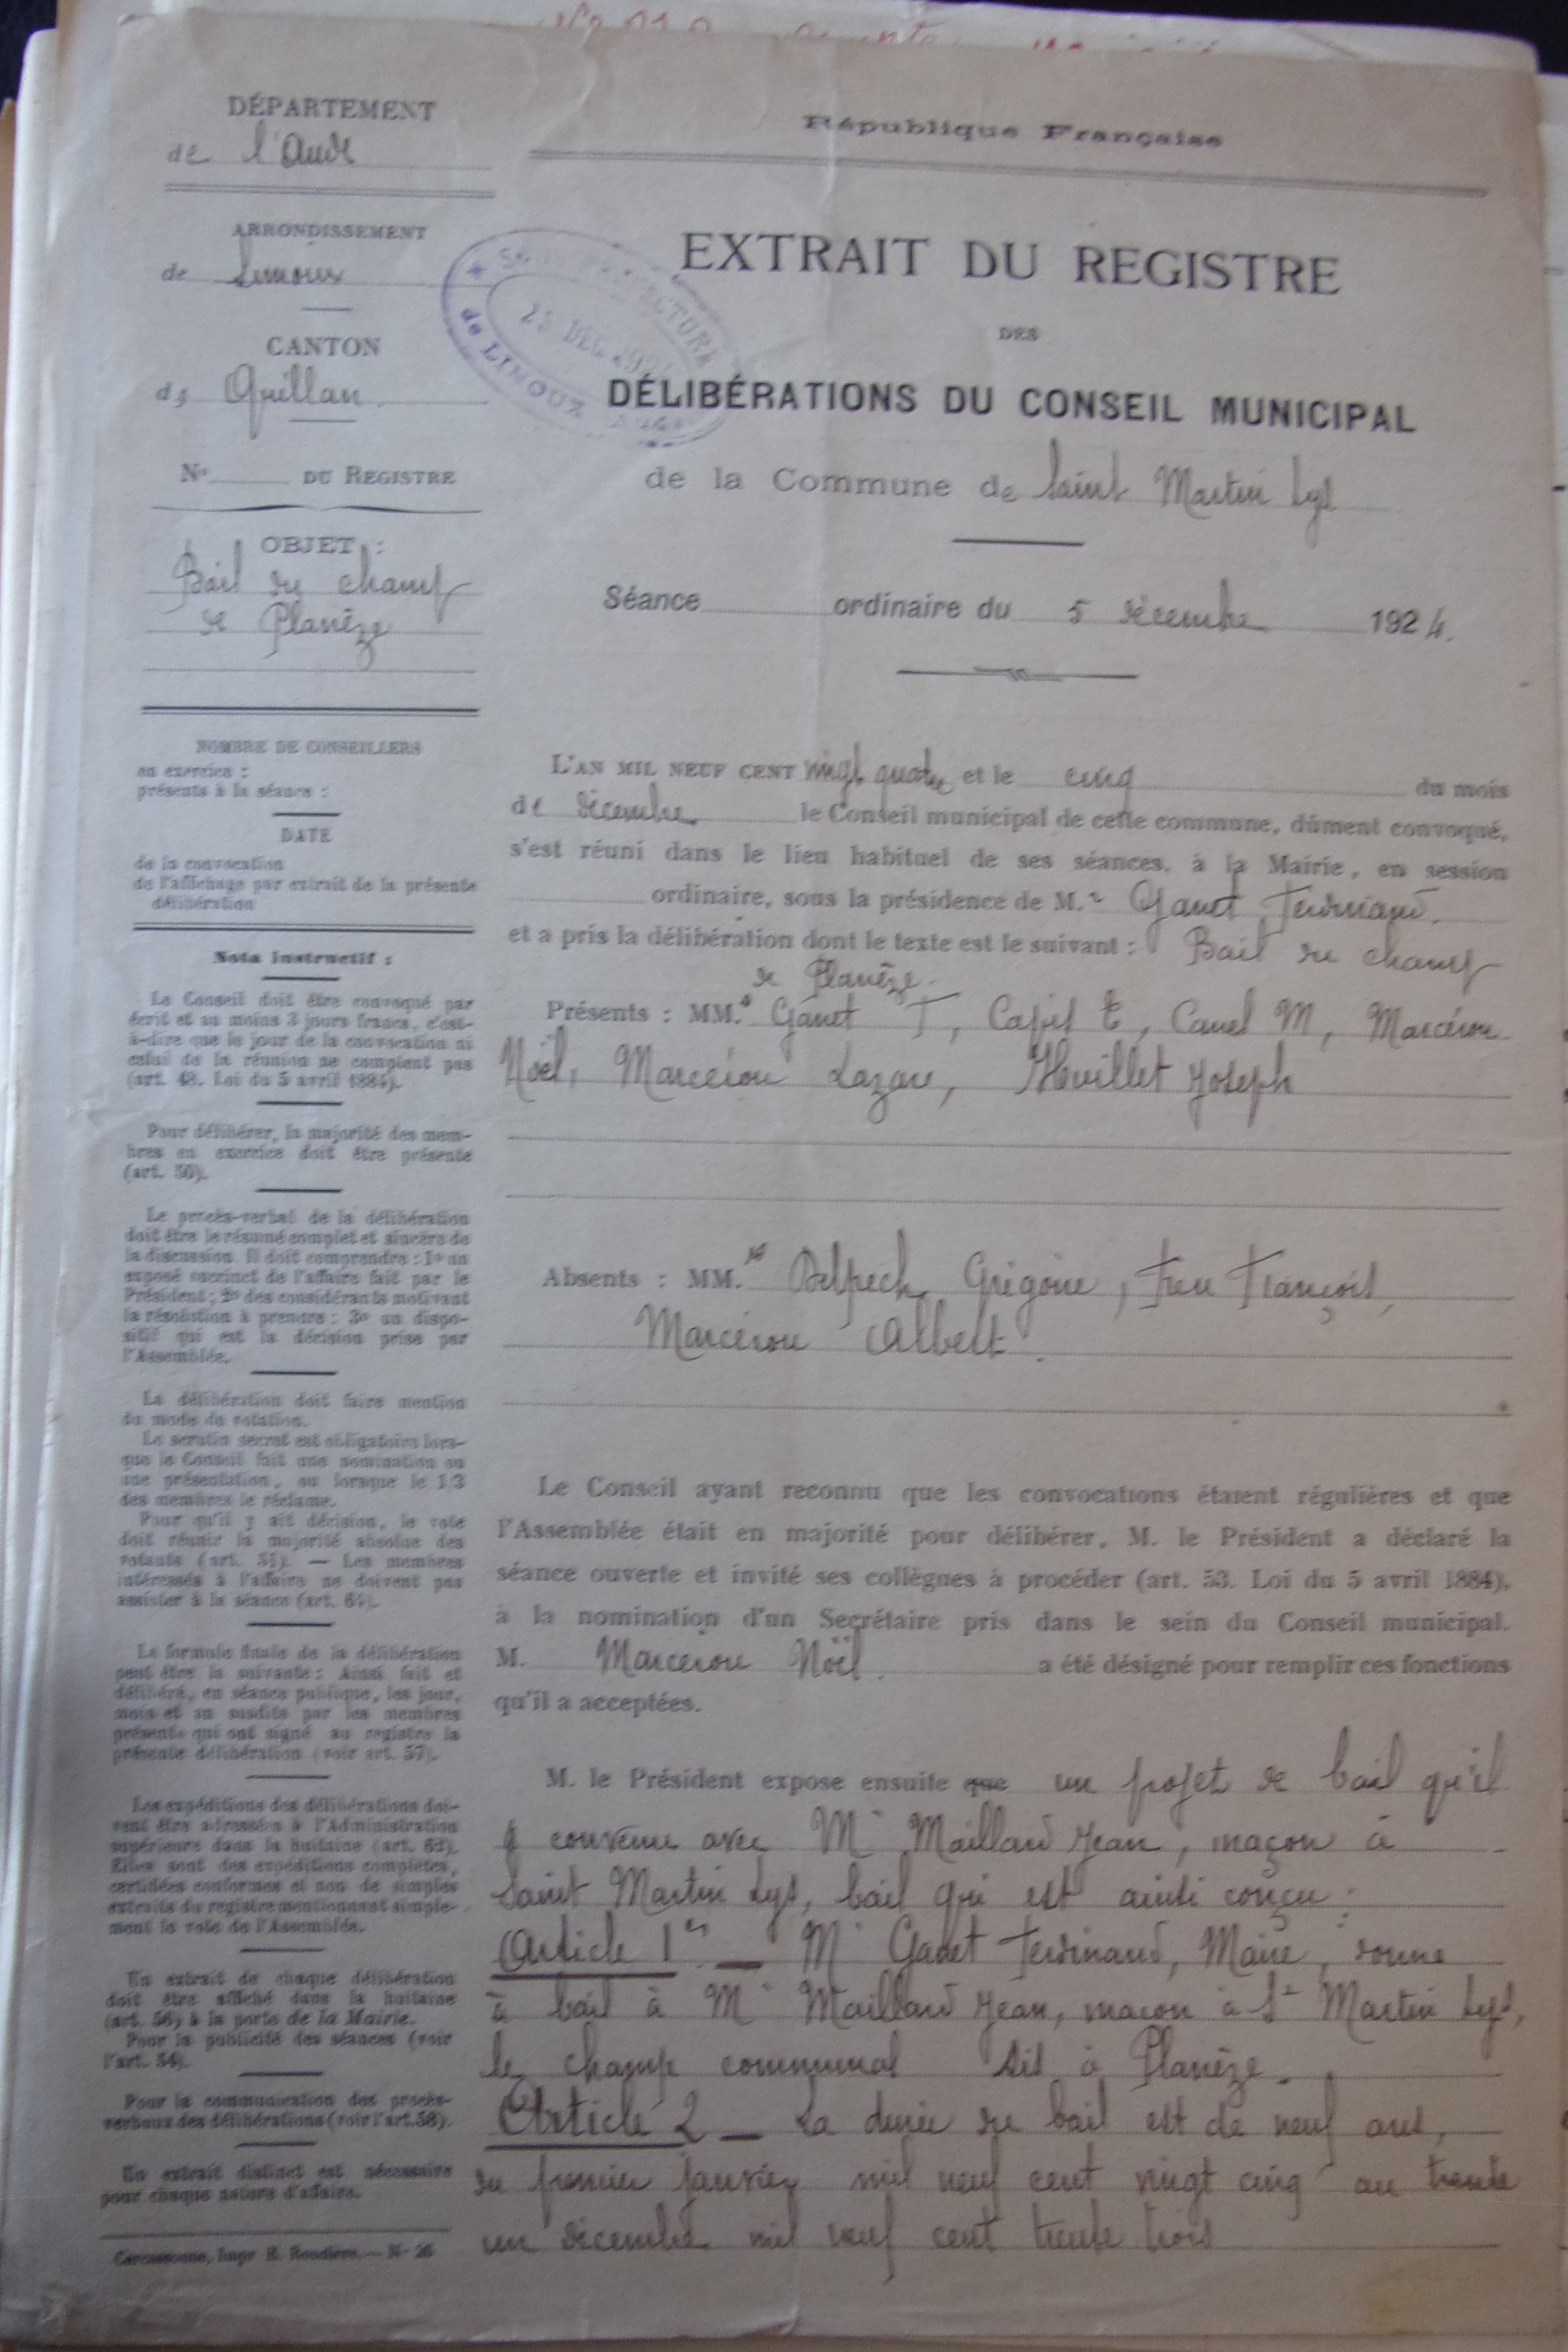 DÉPARTEMENT
de l'Aude
ARRONDISSEMENT
de Limoux
CANTON
de Quillan
No DU REGISTRE
OBJET :
Bail du champ
de Planèze
NOMBRE DE CONSEILLERS
en exercice :
présents à la séance :
DATE
de la convocation
de l'affichage par extrait de la présente
délibération
Nota instructif :
Le Conseil doit être convoqué par
écrit et au moins 3 jours francs, c'est-
à-dire que le jour de la convocation ni
celui de la réunion ne comptent pas
(art. 48. Loi du 5 avril 1884).
Pour délibérer, la majorité des mem-
bres en exercice doit être présente
(art. 50).
Le procès-verbal de la délibération
doit être le résumé complet et sincère de
la discussion. Il doit comprendre : 1o un
exposé succinct de l'affaire fait par le
Président ; 2o des considérants motivant
la résolution à prendre ; 3o un dispo-
sitif qui est la décision prise par
l'Assemblée.
La délibération doit faire mention
du mode de votation.
Le scrutin secret est obligatoire lors-
que le Conseil fait une nomination ou
une présentation, ou lorsque le 1/3
des membres le réclame.
Pour qu'il y ait décision, le vote
doit réunir la majorité absolue des
votants (art. 51). — Les membres
intéressés à l'affaire ne doivent pas
assister à la séance (art. 64).
La formule finale de la délibération
peut être la suivante : Ainsi fait et
délibéré, en séance publique, les jour,
mois et an susdits par les membres
présents qui ont signé au registre la
présente délibération (voir art. 57).
Les expéditions des délibérations doi-
vent être adressées à l'Administration
supérieure dans la huitaine (art. 62).
Elles sont des expéditions complètes,
certifiées conformes et non de simples
extraits du registre mentionnant simple-
ment le vote de l'Assemblée.
Un extrait de chaque délibération
doit être affiché dans la huitaine
(art. 56) à la porte de la Mairie.
Pour la publicité des séances (voir
l'art. 54).
Pour la communication des procès-
verbaux des délibérations (voir l'art. 58).
Un extrait distinct est nécessaire
pour chaque nature d'affaire.
Carcassonne, Impr R. Roudière. — N° 26
République Française
EXTRAIT DU REGISTRE
DES
DÉLIBÉRATIONS DU CONSEIL MUNICIPAL
de la Commune de Saint Martin Lys
de LIMOUX
Séance ordinaire du 5 décembre 1924.
L'AN MIL NEUF CENT vingt quatre et le cinq du mois
de décembre le Conseil municipal de cette commune, dûment convoqué,
s'est réuni dans le lieu habituel de ses séances, à la Mairie, en session
ordinaire, sous la présidence de M.r Ganet Ferdinand.
et a pris la délibération dont le texte est le suivant : Bail du champ
de Planèze.
Présents : MM.rs Ganet F, E, Canel M, Marcérou
Noël, Marcérou Lazare, Huillet Joseph
Absents : MM.rs Delpech Grégoire, François,
Marcérou Albert.
Le Conseil ayant reconnu que les convocations étaient régulières et que
l'Assemblée était en majorité pour délibérer, M. le Président a déclaré la
séance ouverte et invité ses collègues à procéder (art. 53. Loi du 5 avril 1884),
à la nomination d'un Secrétaire pris dans le sein du Conseil municipal.
M. Marcerou Noël. a été désigné pour remplir ces fonctions
qu'il a acceptées.
M. le Président expose ensuite que un projet de bail qu'il
a convenu avec Mr Maillard Jean, maçon à
Saint Martin Lys, bail qui est ainsi conçu :
Article 1er. — Mr Ganet Ferdinand, Maire, donne
à bail à Mr Maillard Jean, maçon à St Martin Lys,
le champ communal sis à Planèze.
Article 2 — La durée du bail est de neuf ans,
du premier janvier mil neuf cent vingt cinq au trente
un décembre mil neuf cent trente trois